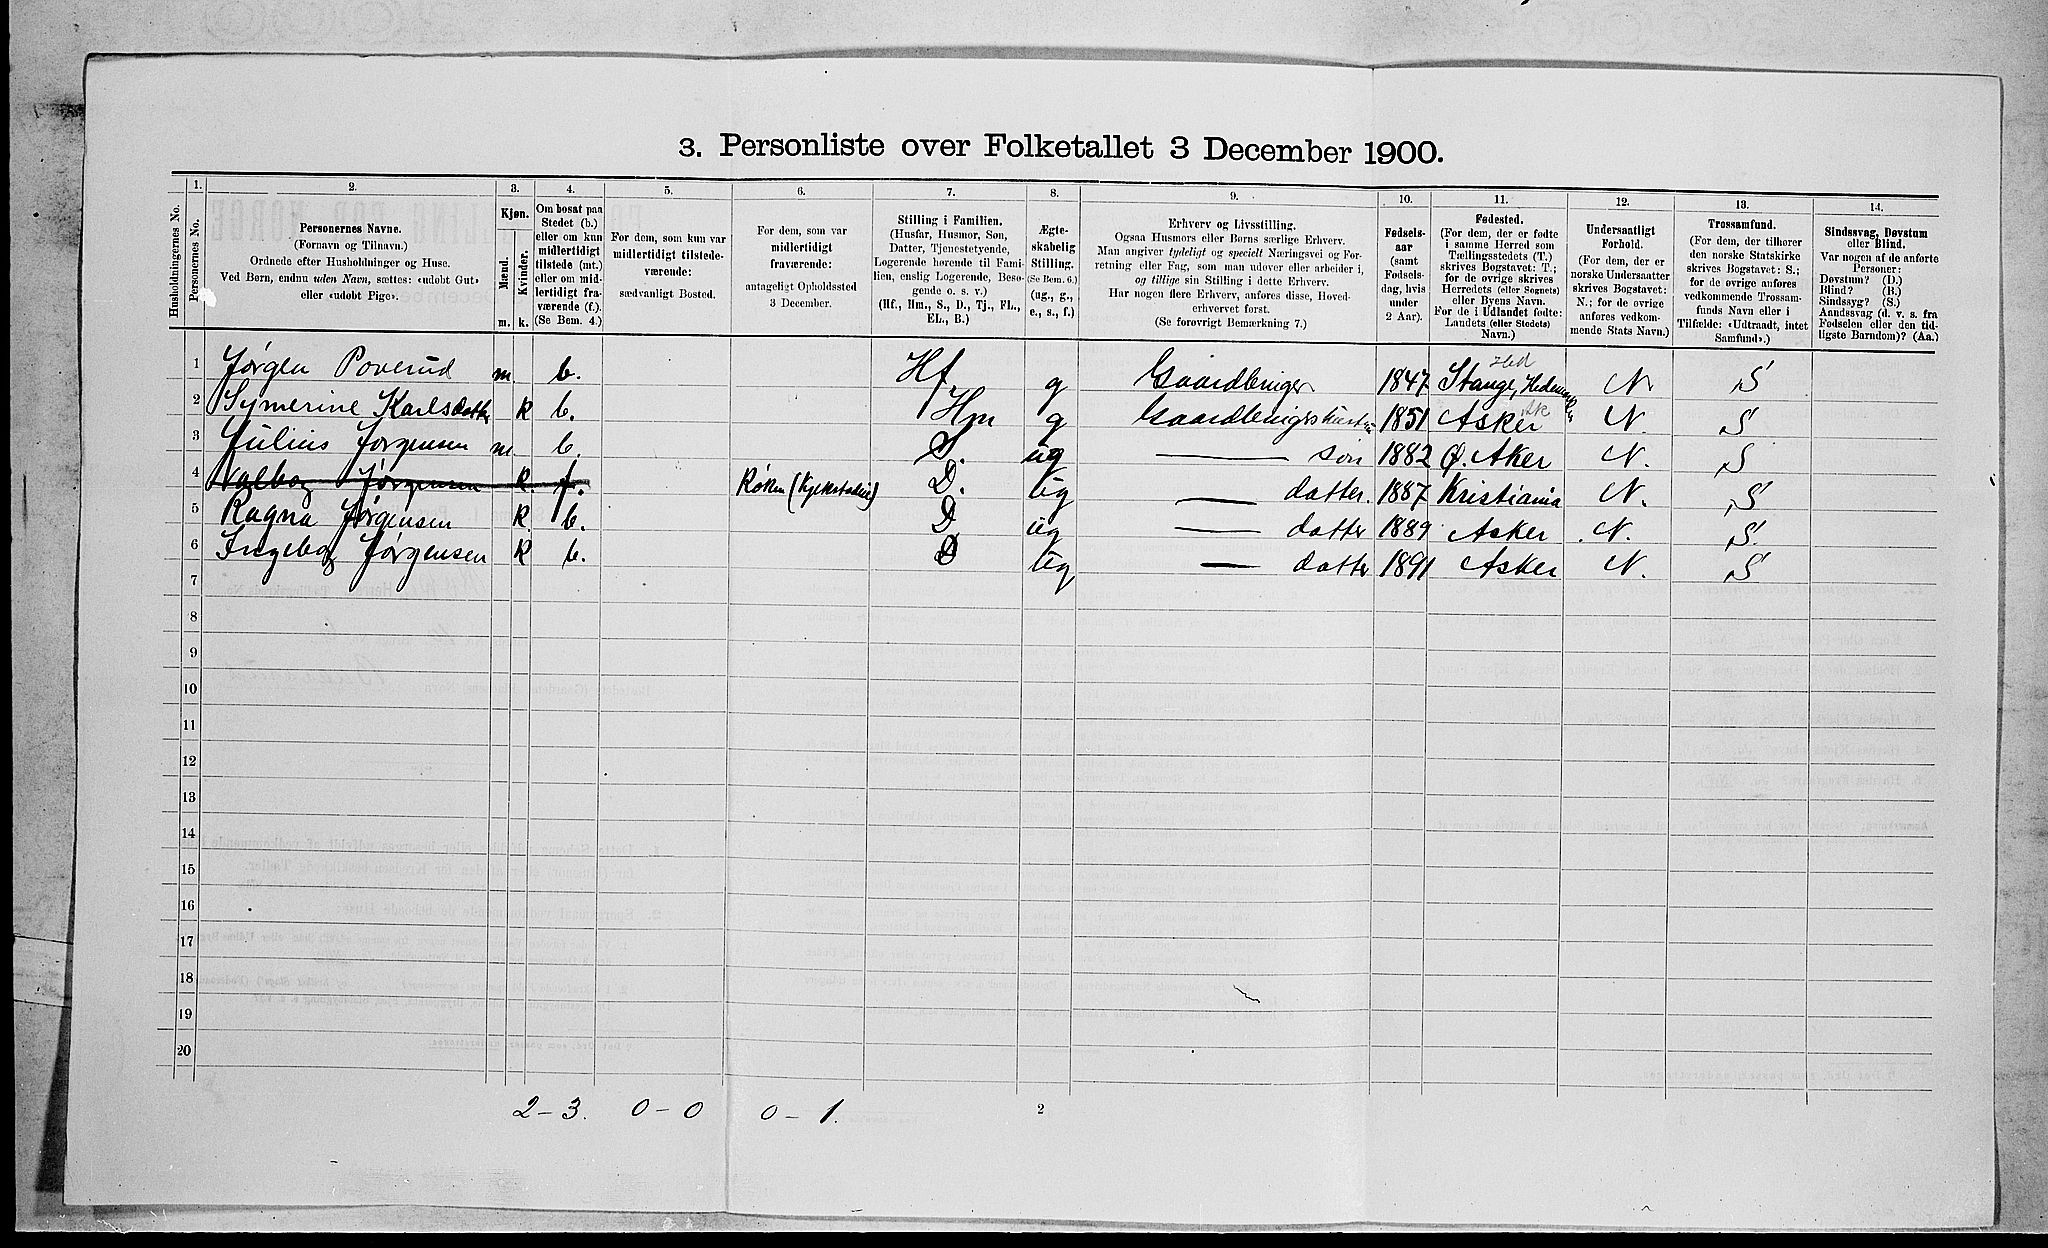 3. Personliste over Folketallet 3 December 1900.
1. 2. 3. 4. 5. 6. 7. 8. 9. 10. 11. 12. 13. 14.
Husholdningernes No.
Personernes No.
Personernes Navne.
(Fornavn og Tilnavn.)
Ordnede efter Husholdninger og Huse.
Ved Børn, endnu uden Navn, sættes: «udøbt Gut»
eller «udøbt Pige».
Kjøn.
Mænd.
Kvinder.
m. k.
Om bosat paa
Stedet (b.)
eller om kun
midlertidigt
tilstede (mt.)
eller om mid-
lertidigt fra-
værende (f.).
(Se Bem. 4.)
For dem, som kun var
midlertidigt tilstede-
værende:
sædvanligt Bosted.
For dem, som var
midlertidigt
fraværende:
antageligt Opholdssted
3 December.
Stilling i Familien.
(Husfar, Husmor, Søn,
Datter, Tjenestetyende,
Logerende hørende til Fami-
lien, enslig Logerende, Besø-
gende o. s. v.)
(Hf., Hm., S., D., Tj., FL.,
EL., B.)
Ægte-
skabelig
Stilling.
(Se Bem. 6.)
(ug., g.,
e., s., f.)
Erhverv og Livsstilling.
Ogsaa Husmors eller Børns særlige Erhverv.
Man angiver tydeligt og specielt Næringsvei og For-
retning eller Fag, som man udøver eller arbeider i,
og tillige sin Stilling i dette Erhverv.
Har nogen flere Erhverv, anføres disse, Hoved-
erhvervet først.
(Se forøvrigt Bemærkning 7.)
Fødsels-
aar
(samt
Fødsels-
dag, hvis
under
2 Aar).
Fødested.
(For dem, der er fødte
i samme Herred som
Tællingsstedets (T.)
skrives Bogstavet: T.;
for de øvrige skrives
Herredets (eller Sognets)
eller Byens Navn.
For de i Udlandet fødte:
Landets (eller Stedets)
Navn.)
Undersaatligt
Forhold.
(For dem, der er
norske Undersaatter
skrives Bogstavet:
N.; for de øvrige
anføres vedkom-
mende Stats Navn.)
Trossamfund.
(For dem, der tilhører
den norske Statskirke
skrives Bogstavet: S.;
for de øvrige anføres
vedkommende Trossam-
funds Navn eller i
Tilfælde: «Udtraadt, intet
Samfund».)
Sindssvag, Døvstum
eller Blind.
Var nogen af de anførte
Personer:
Døvstum? (D.)
Blind? (B.)
Sindssyg? (S.)
Aandssvag (d. v. s. fra
Fødselen eller den tid-
ligste Barndom)? (Aa.)
1 Jørgen Poverud m. b. Hf. g Gaardbruger 1847 Stange, Hedemarken Hed N. S
2 Symerine Karlsdatter k b. Hm g Gaardbrugerskust 1851 Asker Ak N. S
3 Julius Jørgensen m. b. S. ug søn 1882 Ø. Aker N. S
4 Valbog Jørgensen k. f. Røken (Kjekstadlie) D. ug datter. 1887 Kristiania N. S
5 Ragna Jørgensen k. b. D ug datter 1889 Asker N. S.
6 Ingebog Jørgensen k b. D ug datter 1891 Asker N. S
7
8
9
10
11
12
13
14
15
16
17
18
19
20
2 – 3. 0 – 0 0 – 1. 2